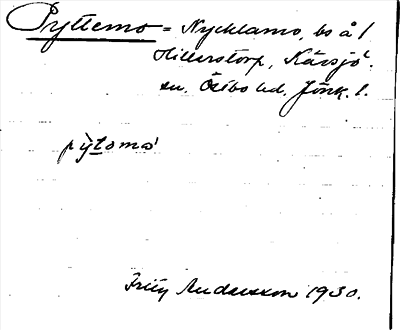 Pyttemo = Nycklamo, bo å /
Hillerstorp, Kärsjö.
sn. Östbo hd. Jönk. l.
pỳtomó
Fritz Andersson 1930.